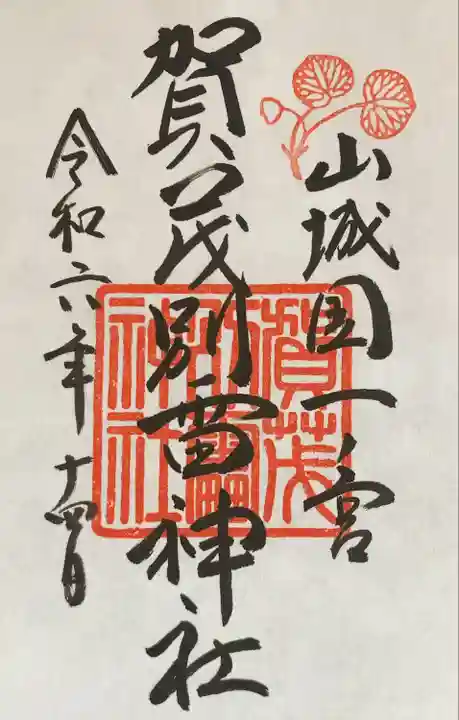 山城国一ノ宮
賀茂別雷神社
令和六年十日
賀茂
別雷
神社